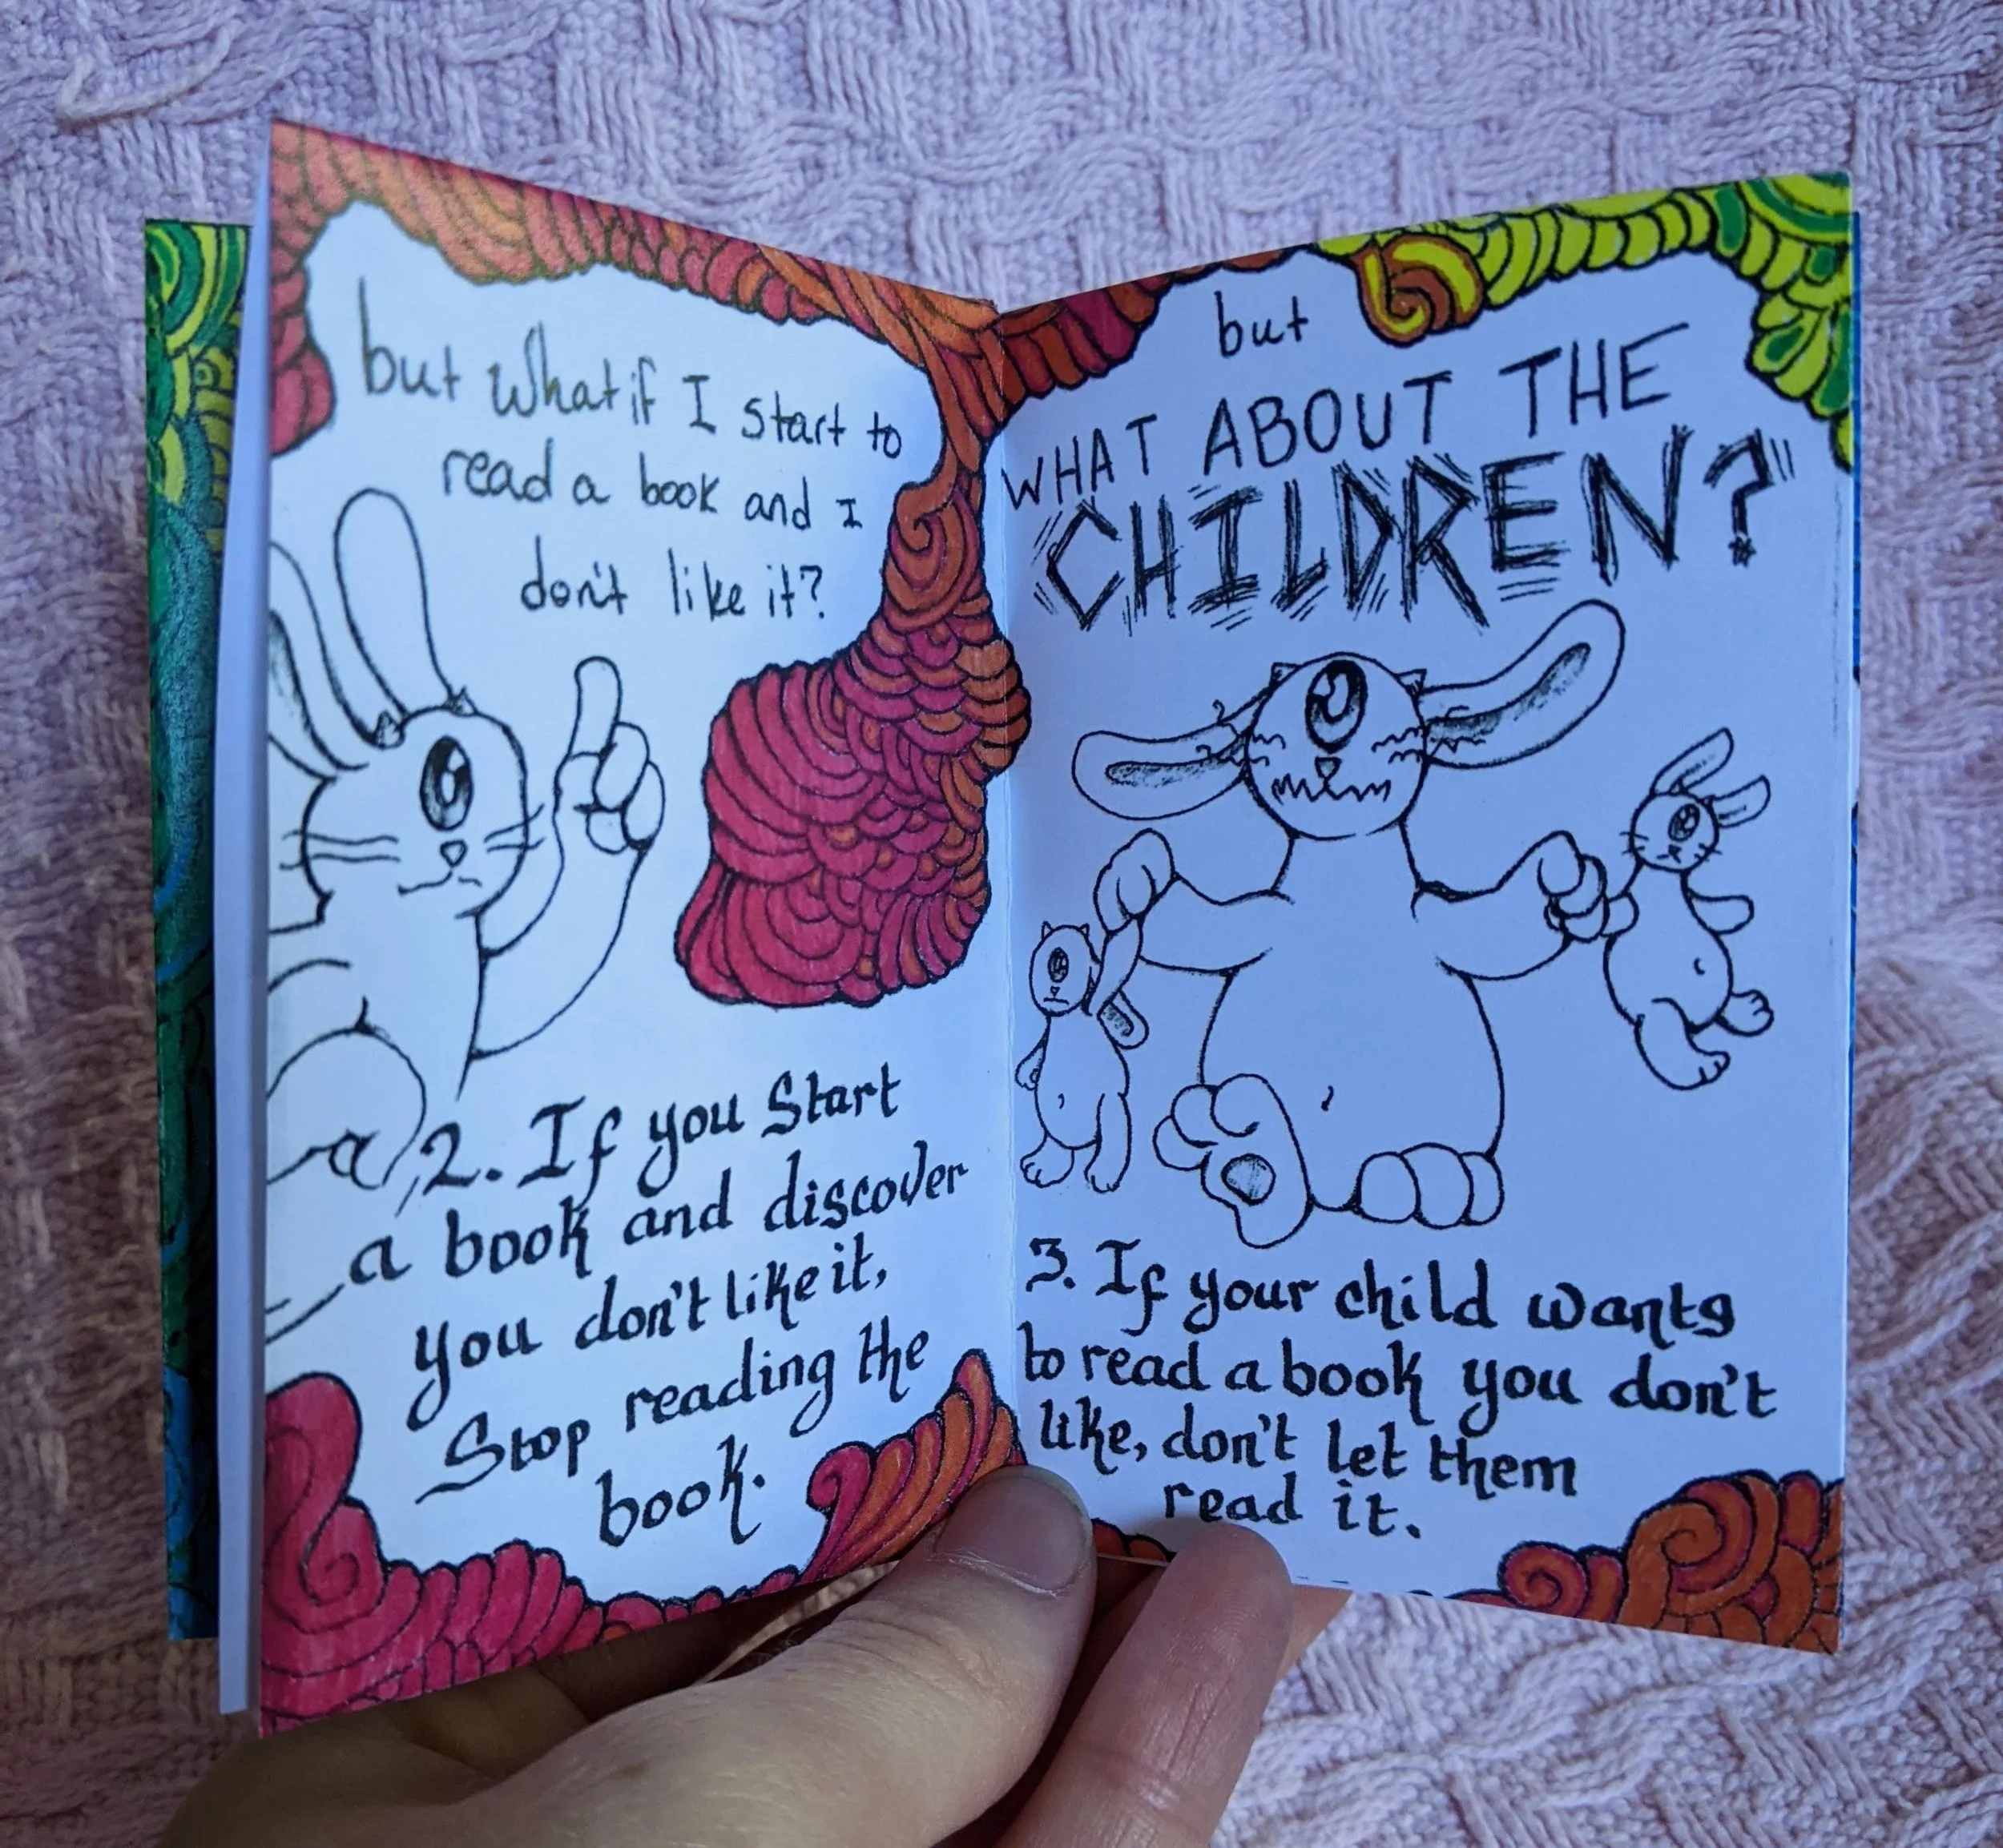 but what if I start to
read a book and I
don't like it?
2. If you start
a book and discover
you don't like it,
Stop reading the
book.
but
WHAT ABOUT THE
CHILDREN?
3. If your child wants
to read a book you don't
like, don't let them
read it.